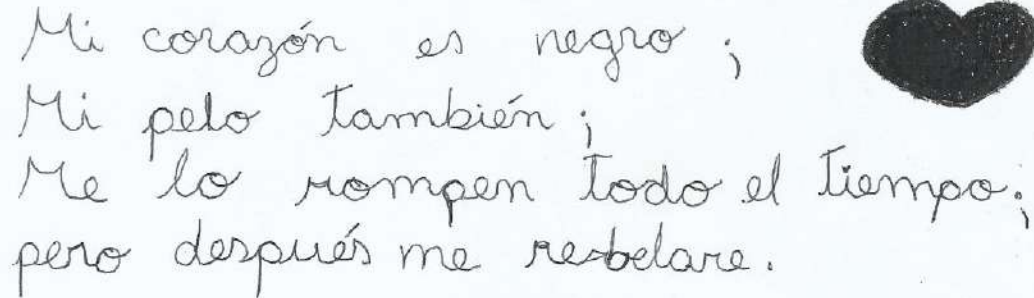 Mi corazón es negro;
Mi pelo también;
Me lo rompen todo el tiempo;
pero después me rebelare.